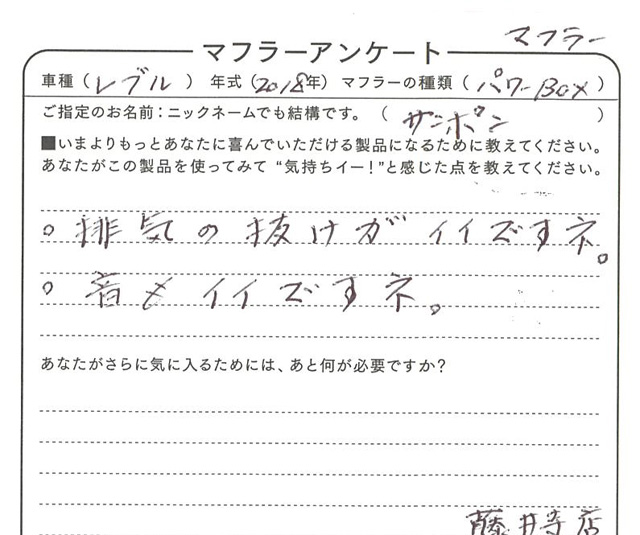 マフラー
マフラーアンケート
車種（レブル） 年式（2018年） マフラーの種類（パワーBOX）
ご指定のお名前：ニックネームでも結構です。（サンポン）
■いまよりもっとあなたに喜んでいただける製品になるために教えてください。
あなたがこの製品を使ってみて“気持ちイー！”と感じた点を教えてください。
○排気の抜けがイイですネ。
○音もイイですネ。
あなたがさらに気に入るためには、あと何が必要ですか？
藤井寺店